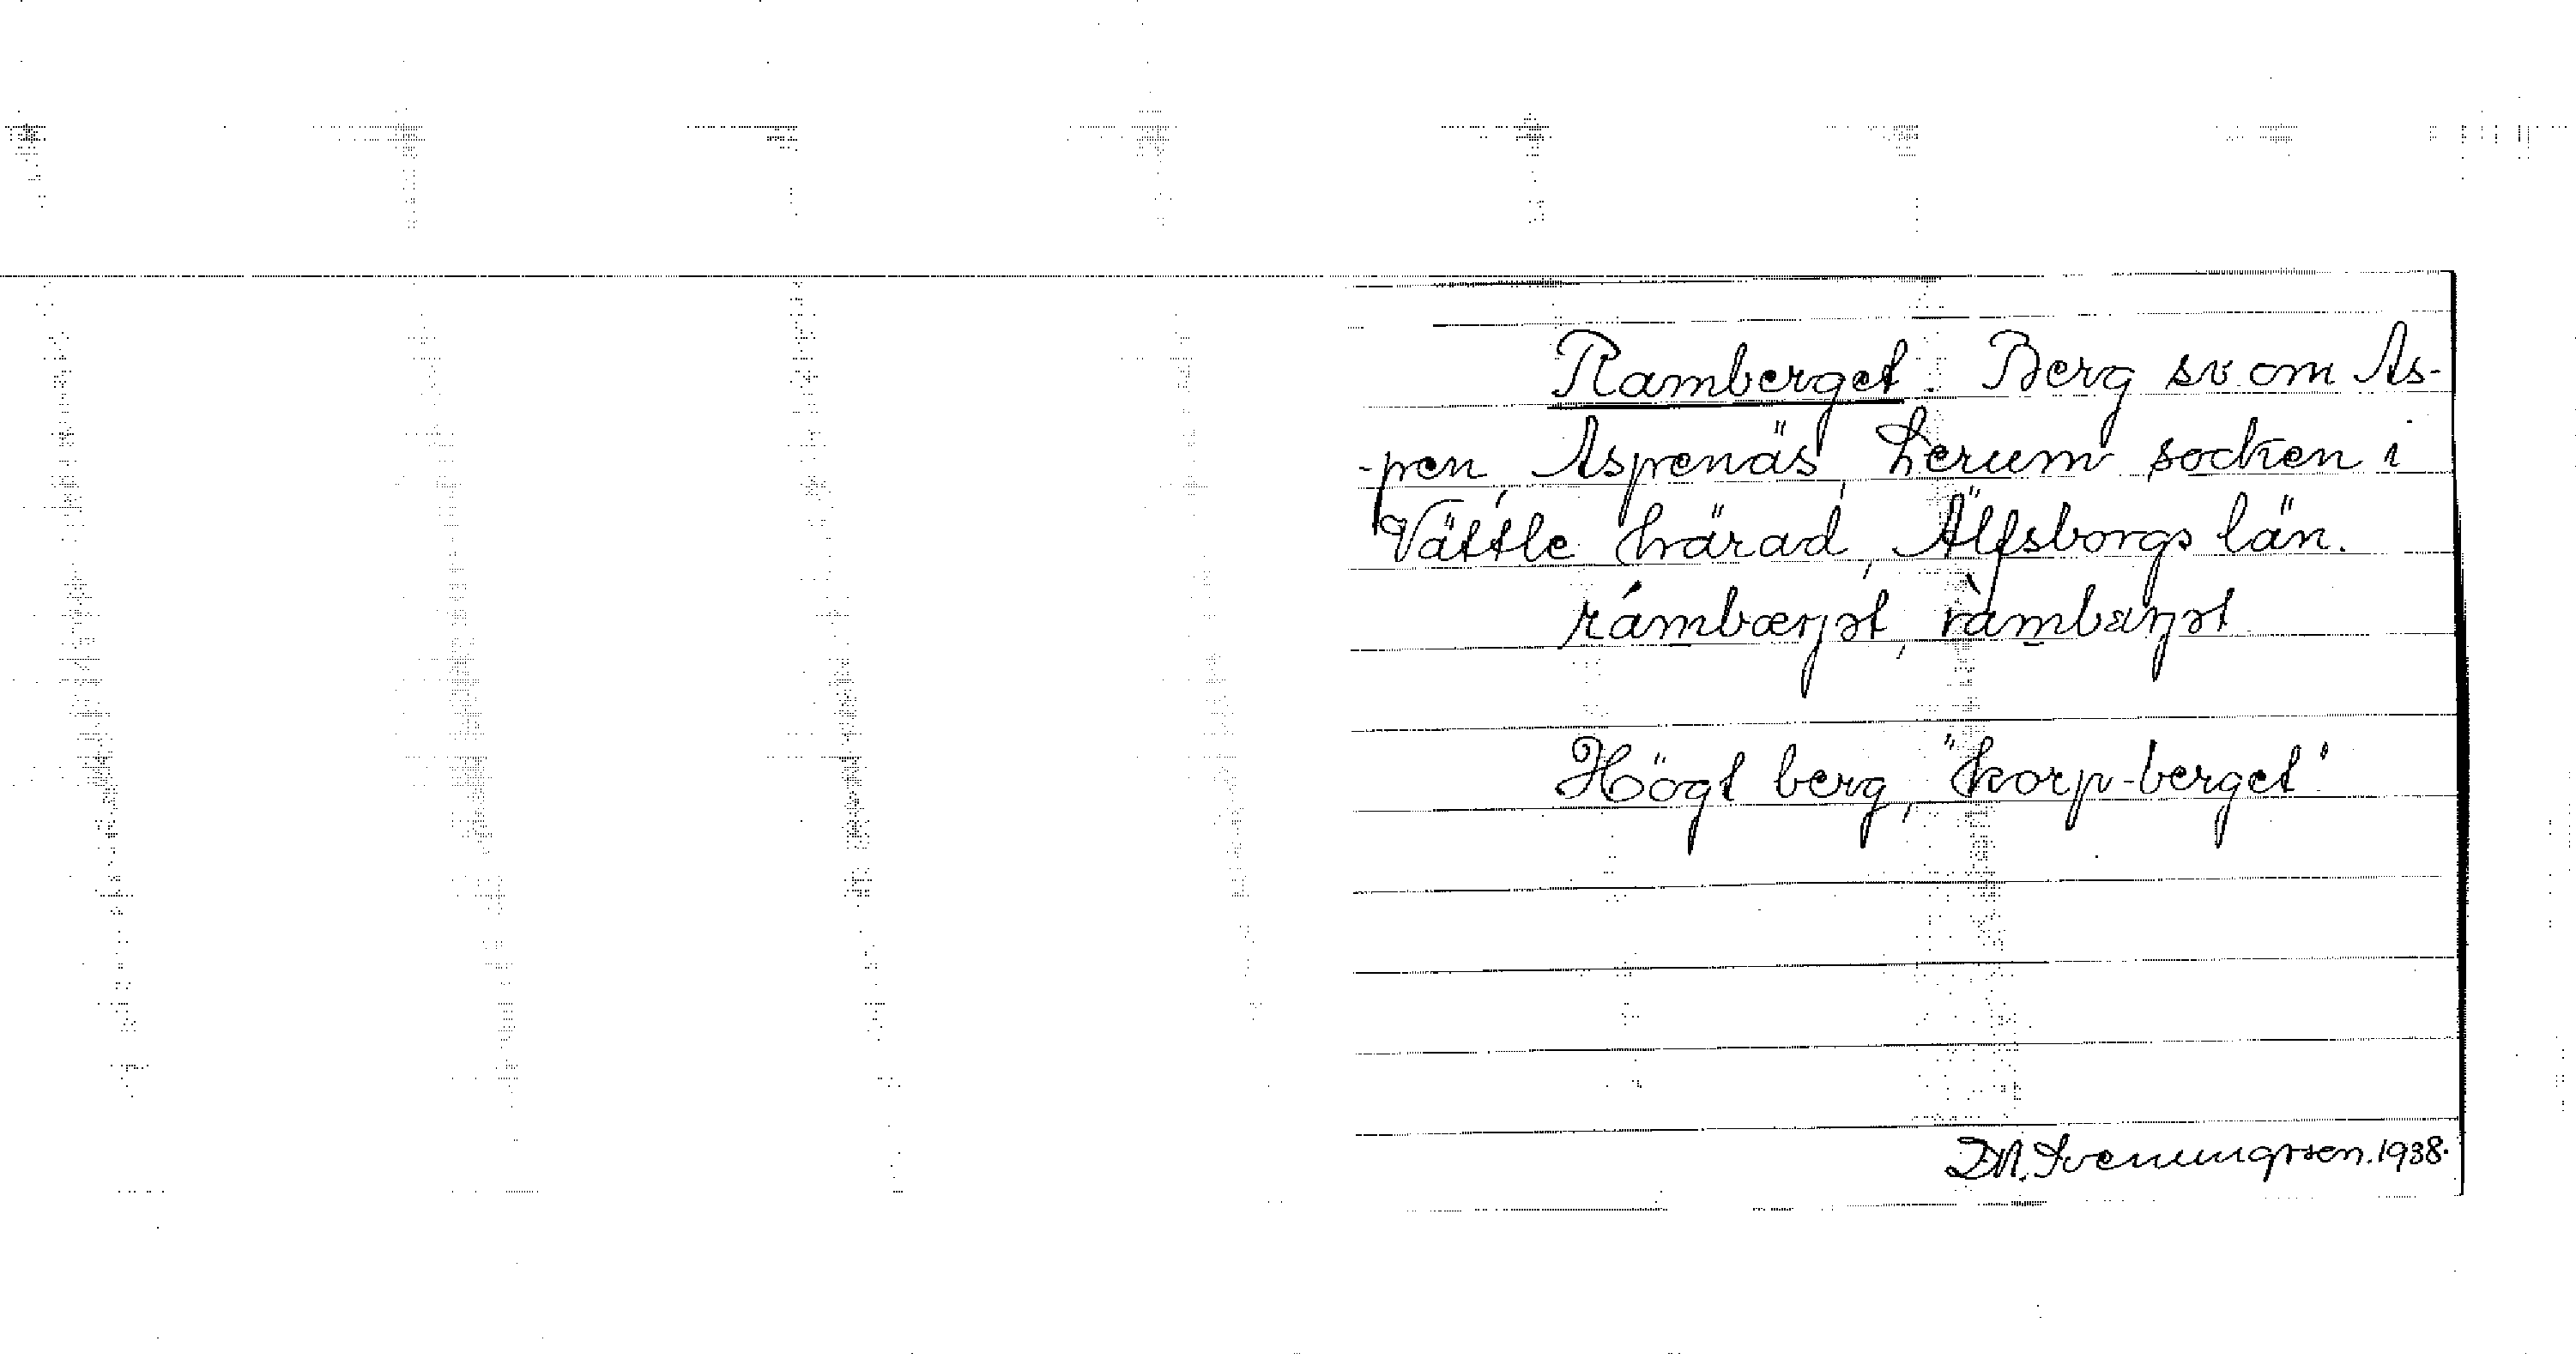 Ramberget. Berg sv. om As-
-pen, Aspenäs, Lerum socken i
Vättle härad, Älfsborgs län.
rámbærjət, ràmbærjət
Högt berg, "korp-berget".
D.A. Svenungsson. 1938.